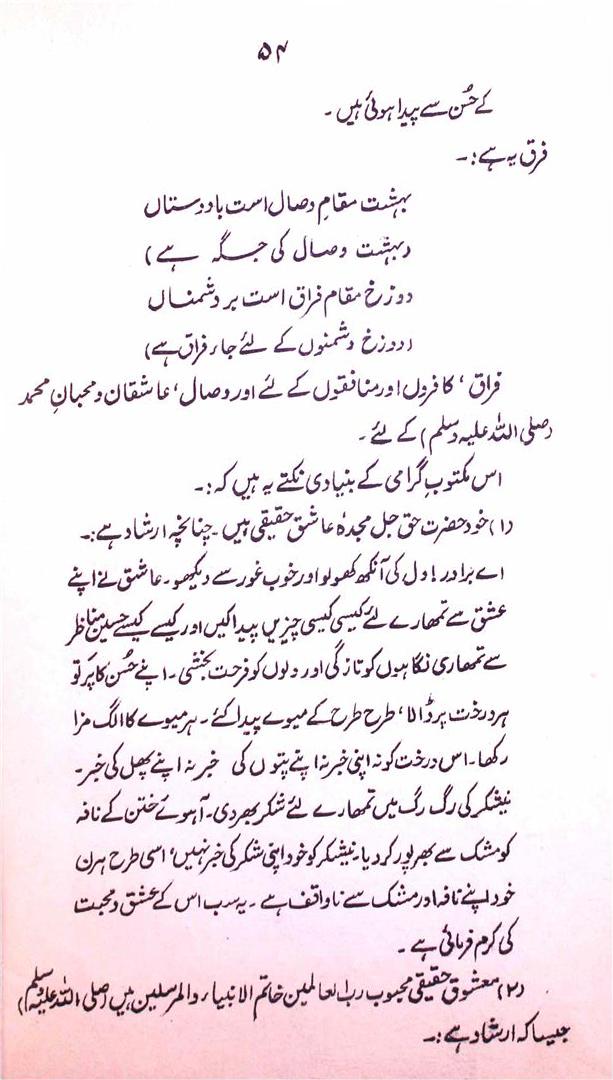 ۵۴
کے حُسن سے پیدا ہوئی ہیں ۔
فرق یہ ہے :۔
بہشت مقامِ وصال است با دوستاں
(بہشت وصال کی جگہ ہے)
دوزخ مقام فراق است بر دشمناں
(دوزخ دشمنوں کے لئے جاءِ فراق ہے)
فراق ، کافروں اور منافقوں کے لئے اور وصال ، عاشقان و محبانِ محمد
(صلی اللہ علیہ وسلم) کے لئے ۔
اس مکتوبِ گرامی کے بنیادی نکتے یہ ہیں کہ :۔
(۱) خود حضرت حق جل مجدہٗ عاشق حقیقی ہیں ۔ چنانچہ ارشاد ہے :۔
اے برادر! دل کی آنکھ کھولو اور خوب غور سے دیکھو ۔ عاشق نے اپنے
عشق سے تمھارے لئے کیسی کیسی چیزیں پیدا کیں اور کیسے کیسے حسین مناظر
سے تمھاری نگاہوں کو تازگی اور دلوں کو فرحت بخشی ۔ اپنے حُسن کا پَرتو
ہر درخت پر ڈالا ، طرح طرح کے میوے پیدا کئے ۔ ہر میوے کا الگ مزا
رکھا ۔ اس درخت کو نہ اپنی خبر نہ اپنے پتوں کی خبر نہ اپنے پھل کی خبر ۔
نیشکر کی رگ رگ میں تمھارے لئے شکر بھر دی ۔ آہوئے ختن کے نافہ
کو مشک سے بھر پور کر دیا ۔ نیشکر کو خود اپنی شکر کی خبر نہیں ، اسی طرح ہرن
خود اپنے نافہ اور مشک سے ناواقف ہے ۔ یہ سب اس کے عشق و محبت
کی کرم فرمائی ہے ۔
(۲) معشوق حقیقی محبوب رب العالمین خاتم الانبیاء والمرسلین ہیں (صلی اللہ علیہ وسلم)
جیسا کہ ارشاد ہے :۔